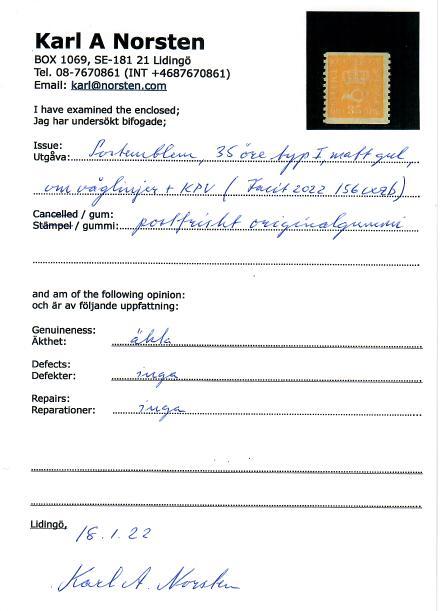 Karl A Norsten
BOX 1069, SE-181 21 Lidingö
Tel. 08-7670861 (INT +4687670861)
Email: karl@norsten.com
I have examined the enclosed;
Jag har undersökt bifogade;
Issue:
Utgåva: Postemblem, 35 öre typ I, matt gul,
vm våglinjer + KPV (Facit 2022 156
Cancelled / gum:
Stämpel / gummi: postfriskt originalgummi
and am of the following opinion:
och är av följande uppfattning:
Genuineness:
Äkthet: äkta
Defects:
Defekter: inga
Repairs:
Reparationer: inga
Lidingö, 18.1.22
Karl A. Norsten